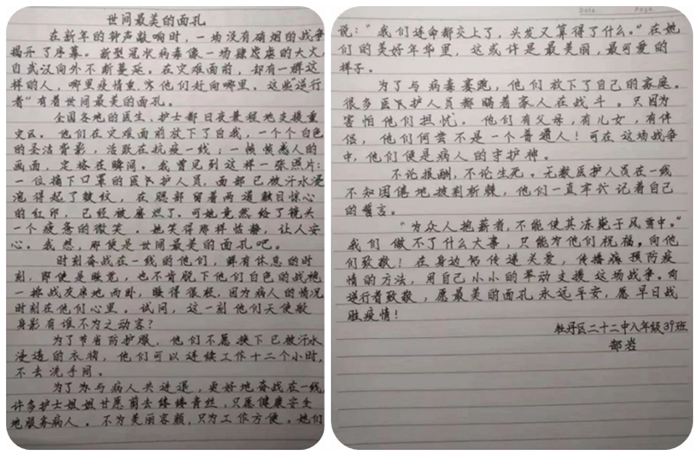 世间最美的面孔
在新年的钟声敲响时，一场没有硝烟的战争
揭开了序幕。新型冠状病毒像一场肆虐的大火，
自武汉向外不断蔓延。在灾难面前，却有一群这
样的人，哪里疫情重，他们赶向哪里，这些逆行
者"有着世间最美的面孔。
全国各地的医生、护士都日夜兼程地支援重
灾区。他们在灾难面前放下了自我，一个个白色
的圣洁背影，活跃在抗疫一线；一帧帧感人的
画面，定格在瞬间。我曾见到这样一张照片：
一位摘下口罩的医护人员，面部已被汗水浸
泡得起了皱纹，在腮部留着两道触目惊心
的红印，已经被磨烂了。可她竟然给了镜头
一个疲惫的微笑。她笑得那样恬静，让人安
心。我想，那便是世间最美的面孔吧。
时刻奋战在一线的他们，鲜有休息的时
刻，即使是睡觉，也不肯脱下他们白色的战袍
一挨战友席地而卧，睡得很轻，因为病人的情况
时刻在他们心里。试问，这一刻他们天使般
身影有谁不为之动容？
为了节省防护服，他们不愿换下已被汗水
浸透的衣物，他们可以连续工作十二个小时，
不去洗手间。
为了与病人共进退，更好地奋战在一线
许多护士姐姐甘愿剪去缕缕青丝，只愿健康安全
地服务病人。不为美丽容颜，只为工作方便。她们
说："我们连命都交上了，头发又算得了什么。"在她
们的美好年华里，这或许是最美丽，最可爱的
样子。
为了与病毒赛跑，他们放下了自己的家庭。
很多医护人员都瞒着家人在战斗。只因为
害怕他们担忧。他们有父母，有儿女，有伴
侣，他们何尝不是一个普通人！可在这场战争
中，他们便是病人的守护神。
不论报酬，不论生死。无数医护人员在一线
不知困倦地披荆斩棘，他们一直牢记着自己
的誓言。
"为众人抱薪者，不能使其冻毙于风雪中。"
我们做不了什么大事，只能为他们祝福，向他
们致敬！在身边传递关爱，传播病预防疫
情的方法，用自己小小的举动支援这场战争。向
逆行者致敬，愿最美的面孔永远平安，愿早日战
胜疫情！
牡丹区二十二中八年级39班
郜岩